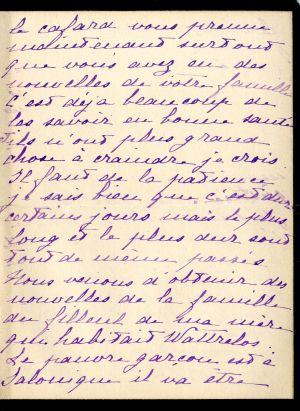 le cafard vous prenne
maintenant surtout
que vous avez eu des
nouvelles de votre famille
C'est déjà beaucoup de
les savoir en bonne santé
ils n'ont plus grand
chose à craindre je crois.
Il faut de la patience
je sais bien que c'est dur
certains jours mais le plus
long et le plus dur sont
tout de même passés
Nous venons d'obtenir des
nouvelles de la famille
du filleul de ma mère
qui habitait Wattrelos.
Le pauvre garçon est à
Salonique il va être